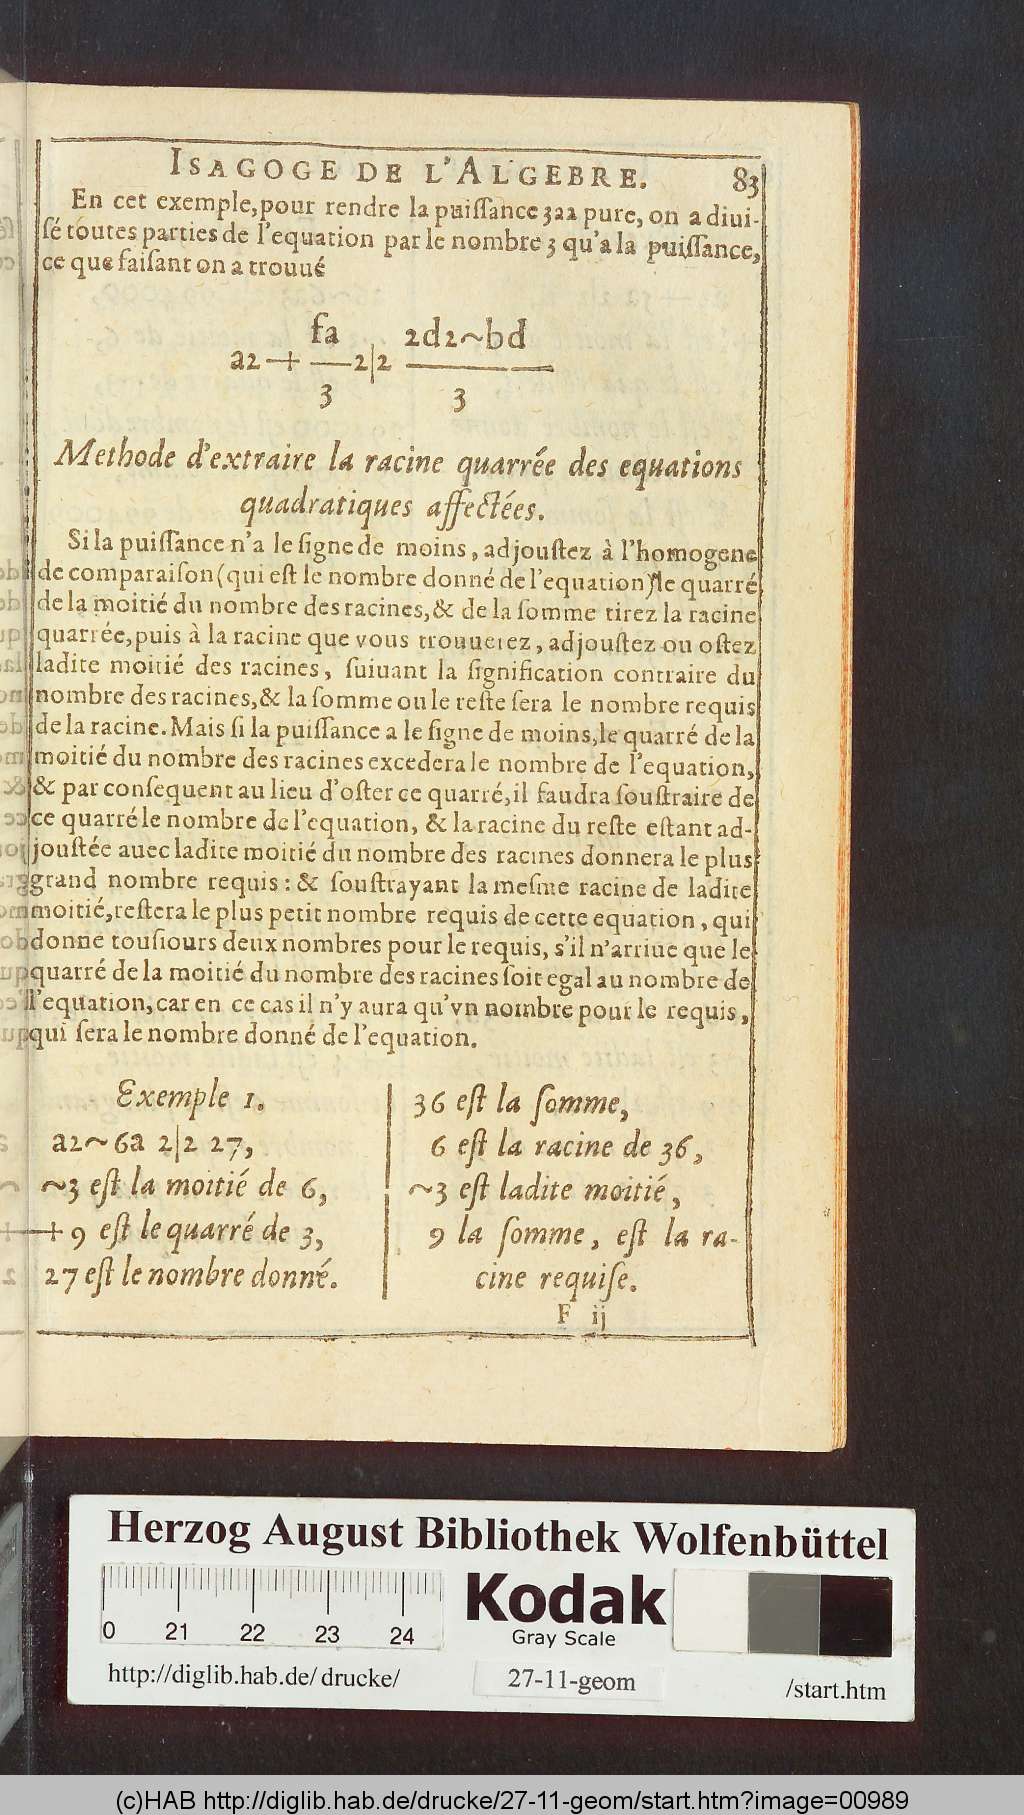 ISAGOGE DE L'ALGEBRE. 83
En cet exemple, pour rendre la puiſſance 3a2 pure, on a diui-
ſé toutes parties de l'equation par le nombre 3 qu'a la puiſſance,
ce que faiſant on a trouué
fa 2d2~bd
a2+ — 2|2 ———
3 3
Methode d'extraire la racine quarrée des equations
quadratiques affectées.
Si la puiſſance n'a le ſigne de moins, adjouſtez à l'homogene
de comparaiſon (qui eſt le nombre donné de l'equation) le quarré
de la moitié du nombre des racines, & de la ſomme tirez la racine
quarrée, puis à la racine que vous trouuerez, adjouſtez ou oſtez
ladite moitié des racines, ſuiuant la ſignification contraire du
nombre des racines, & la ſomme ou le reſte ſera le nombre requis
de la racine. Mais ſi la puiſſance a le ſigne de moins, le quarré de la
moitié du nombre des racines excedera le nombre de l'equation,
& par conſequent au lieu d'oſter ce quarré, il faudra ſouſtraire de
ce quarré le nombre de l'equation, & la racine du reſte eſtant ad-
jouſtée auec ladite moitié du nombre des racines donnera le plus
grand nombre requis : & ſouſtrayant la meſme racine de ladite
moitié, reſtera le plus petit nombre requis de cette equation, qui
donne touſiours deux nombres pour le requis, s'il n'arriue que le
quarré de la moitié du nombre des racines ſoit egal au nombre de
l'equation, car en ce cas il n'y aura qu'vn nombre pour le requis,
qui ſera le nombre donné de l'equation.
Exemple 1.
a2~6a 2|2 27,
~3 eſt la moitié de 6,
+9 eſt le quarré de 3,
27 eſt le nombre donné.
36 eſt la ſomme,
6 eſt la racine de 36,
~3 eſt ladite moitié,
9 la ſomme, eſt la ra-
cine requiſe.
F ij
Herzog August Bibliothek Wolfenbüttel
0 21 22 23 24
Kodak
Gray Scale
http://diglib.hab.de/drucke/ 27-11-geom /start.htm
(c)HAB http://diglib.hab.de/drucke/27-11-geom/start.htm?image=00989